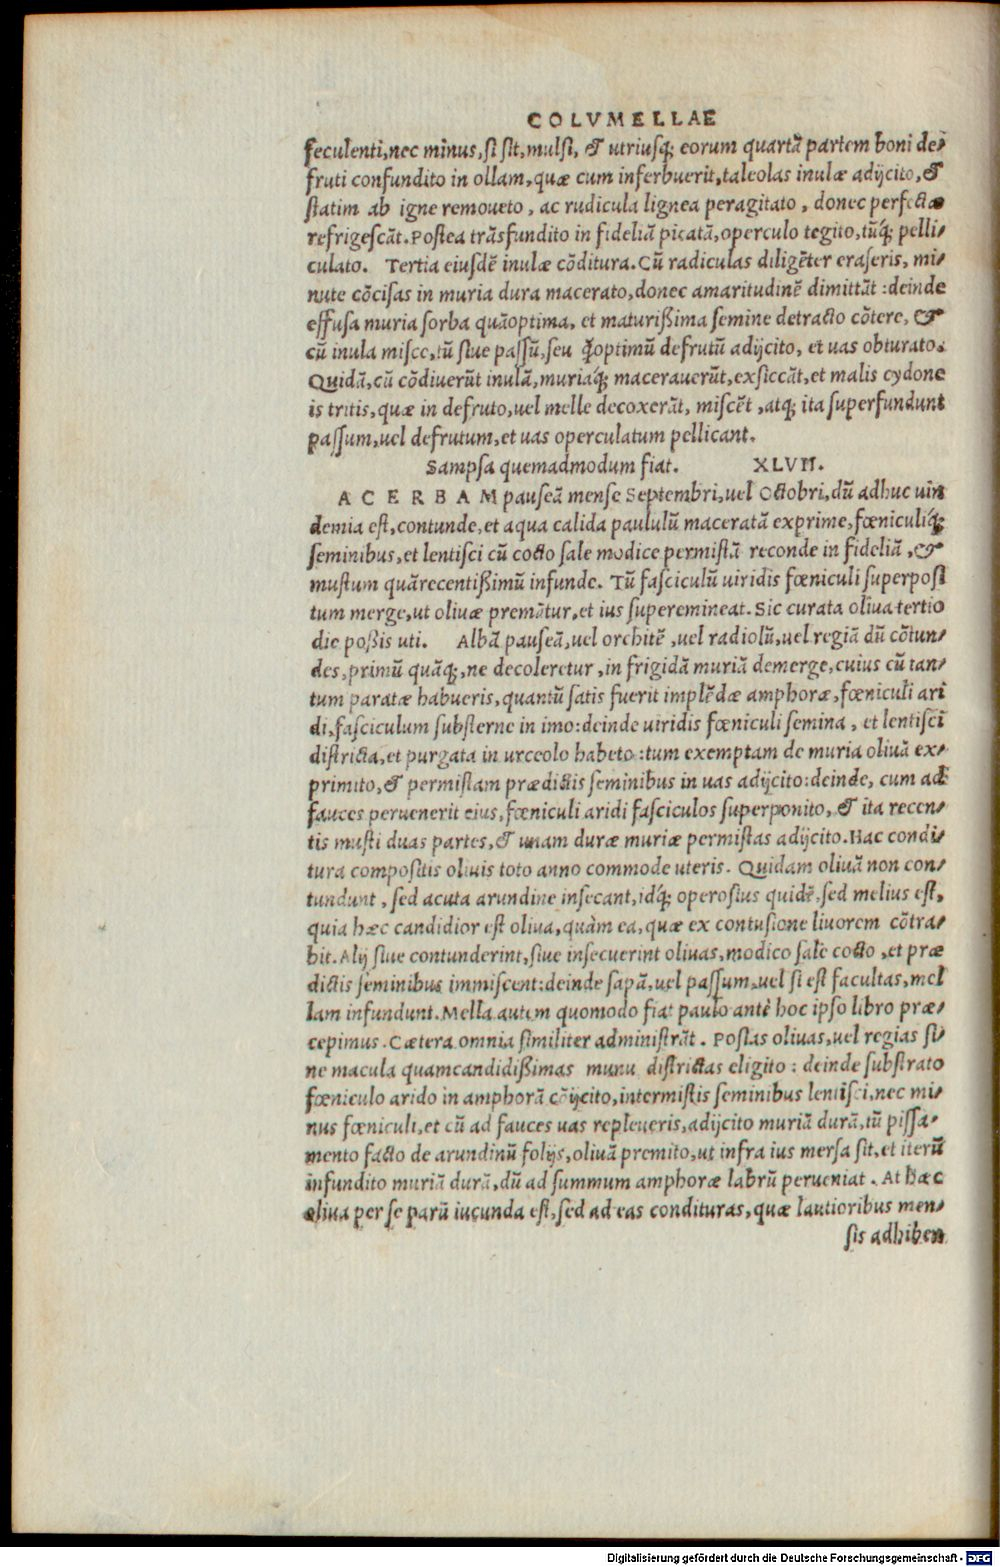 COLVMELLAE
feculenti, nec minus, si sit, mulsi, & utriusq; eorum quartã partem boni de-
fruti confundito in ollam, quæ cum inferbuerit, taleolas inulæ adijcito, &
statim ab igne remoueto, ac rudicula lignea peragitato, donec perfectæ
refrigescãt. Postea trãsfundito in fideliã picatã, operculo tegito, tũq; pelli-
culato. Tertia eiusdẽ inulæ cõditura. Cũ radiculas diligẽter eraseris, mi-
nute cõcisas in muria dura macerato, donec amaritudinẽ dimittãt: deinde
effusa muria sorba quãoptima, et maturißima semine detracto cõtere, &
cũ inula misce, tũ siue passũ, seu q̃optimũ defrutũ adijcito, et uas obturato.
Quidã, cũ cõdiuerũt inulã, muriaq́; macerauerũt, exsiccãt, et malis cydone
is tritis, quæ in defruto, uel melle decoxerãt, miscẽt, atq; ita superfundunt
passum, uel defrutum, et uas operculatum pellicant.
Sampsa quemadmodum fiat. XLVII.
ACERBAM pauseã mense Septembri, uel Octobri, dũ adhuc uin
demia est, contunde, et aqua calida paululũ maceratã exprime, fœniculiq́;
seminibus, et lentisci cũ cocto sale modice permistã reconde in fideliã, &
mustum quãrecentißimũ infunde. Tũ fasciculũ uiridis fœniculi superposi
tum merge, ut oliuæ premãtur, et ius superemineat. Sic curata oliua tertio
die poßis uti. Albã pauseã, uel orchitẽ, uel radiolũ, uel regiã dũ cõtun-
des, primũ quãq;, ne decoloretur, in frigidã muriã demerge, cuius cũ tan-
tum paratæ habueris, quantũ satis fuerit implẽdæ amphoræ, fœniculi ari
di, fasciculum substerne in imo: deinde uiridis fœniculi semina, et lentisci
districta, et purgata in urceolo habeto: tum exemptam de muria oliuã ex-
primito, & permistam prædictis seminibus in uas adijcito: deinde, cum ad
fauces peruenerit eius, fœniculi aridi fasciculos superponito, & ita recen-
tis musti duas partes, & unam duræ muriæ permistas adijcito. Hac condi-
tura compositis oliuis toto anno commode uteris. Quidam oliuã non con-
tundunt, sed acuta arundine insecant, idq́; operosius quidẽ, sed melius est,
quia hæc candidior est oliua, quàm ea, quæ ex contusione liuorem cõtra-
hit. Alij siue contunderint, siue insecuerint oliuas, modico sale cocto, et præ
dictis seminibus immiscent: deinde sapã, uel passum, uel si est facultas, mel
lam infundunt. Mella autem quomodo fiat paulo antè hoc ipso libro præ-
cepimus. Cætera omnia similiter administrãt. Postas oliuas, uel regias si-
ne macula quamcandidißimas munu districtas eligito: deinde substrato
fœniculo arido in amphorã cõijcito, intermistis seminibus lentisci, nec mi-
nus fœniculi, et cũ ad fauces uas repleueris, adijcito muriã durã, tũ pissa-
mento facto de arundinũ folijs, oliuã premito, ut infra ius mersa sit, et iterũ
infundito muriã durã, dũ ad summum amphoræ labrũ perueniat. At hæc
oliua per se parũ iucunda est, sed ad eas condituras, quæ lautioribus men-
sis adhiben
Digitalisierung gefördert durch die Deutsche Forschungsgemeinschaft - DFG